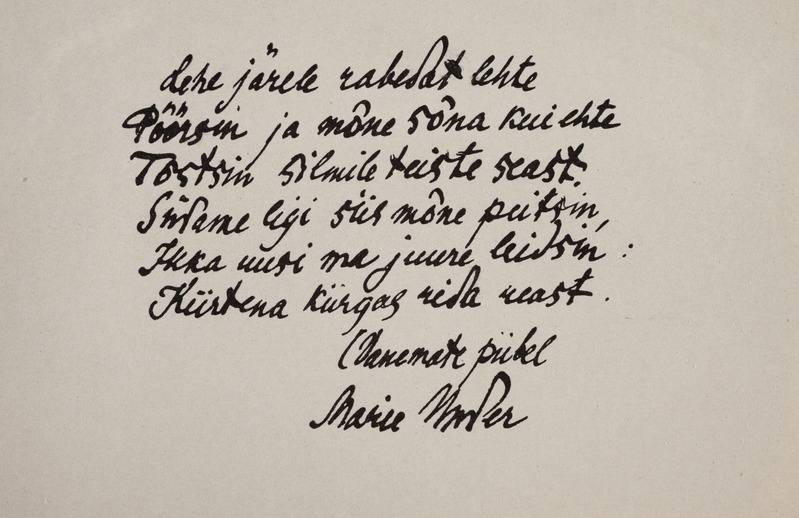 Lehe järele rabedat lehte
Pöörsin ja mõne sõna kui ehte
Tõstsin silmile teiste seast.
Südame ligi siis mõne peitsin,
Ikka uusi ma juure leidsin :
Kiirtena kiirgas rida reast.
(Vanemate piibel
Marie Under